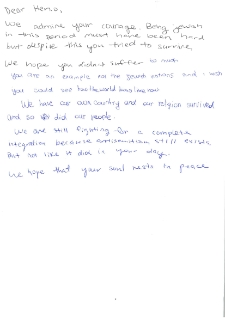 Dear Heroo,
We admire your courage. Being jewish
in this period must have been hard
but despite this you tried to survive.
We hope you didnt suffer to much
you are an example for the and wish
you could see how the world is now
We have our own country and our religion survived
and so did our people.
We are still fighting for a complete
integration because antisemitism still exists
But not like it did in your day.
We hope that your soul rests in peace